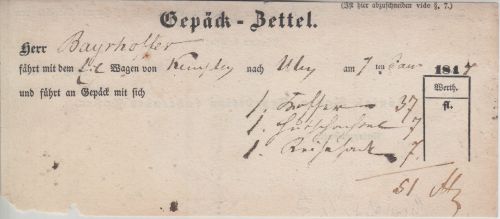 (Ist hier abzuschneiden vide §. 7.)
Gepäck-Zettel.
Herr Bayrhoffer
fährt mit dem Eil Wagen von Kempten nach Ulm am 7 ten Jan 1847
und führt an Gepäck mit sich
Werth.
fl.
1. Koffer 37
1. Hutschachtel 7
1. Reisesack 7.
51 ℔